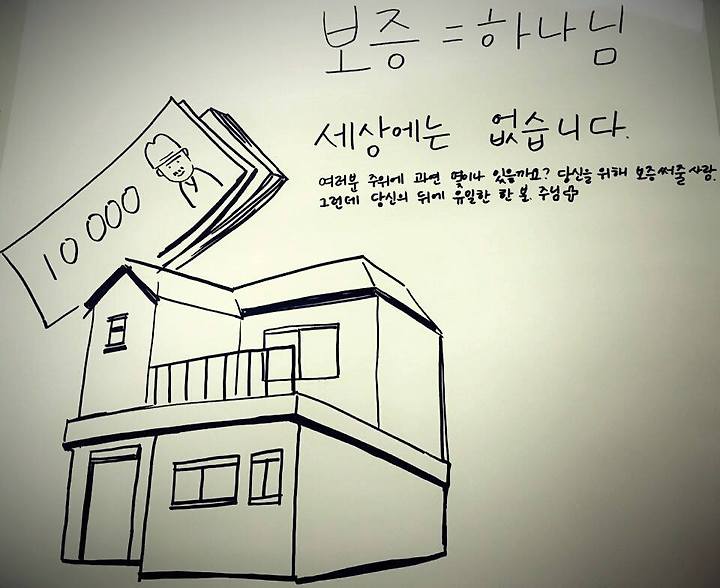 보증 = 하나님
세상에는 없습니다.
여러분 주위에 과연 몇이나 있을까요? 당신을 위해 보증써줄 사람.
그런데 당신의 뒤에 유일한 한 분. 주님
10000